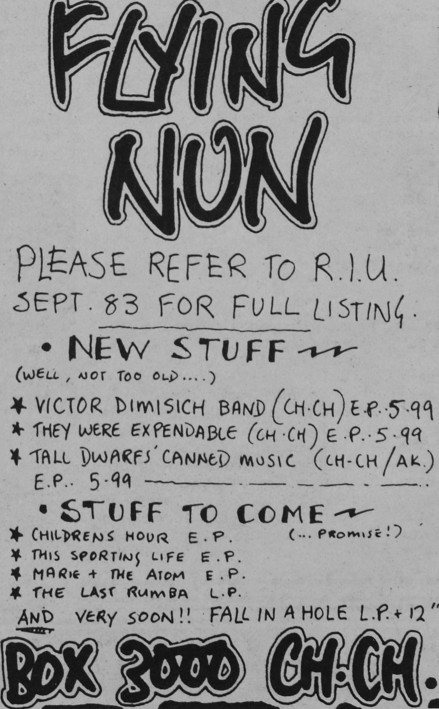 FLYING
NUN
PLEASE REFER TO R.I.U.
SEPT. 83 FOR FULL LISTING.
• NEW STUFF
(WELL, NOT TOO OLD....)
★ VICTOR DIMISICH BAND (CH·CH) E.P. 5·99
★ THEY WERE EXPENDABLE (CH·CH) E.P. 5·99
★ TALL DWARFS' CANNED MUSIC (CH-CH/AK.)
E.P. 5·99
• STUFF TO COME
★ CHILDRENS HOUR E.P. (... PROMISE!)
★ THIS SPORTING LIFE E.P.
★ MARIE + THE ATOM E.P.
★ THE LAST RUMBA L.P.
AND VERY SOON!! FALL IN A HOLE L.P. + 12"
BOX 3000 CH·CH.